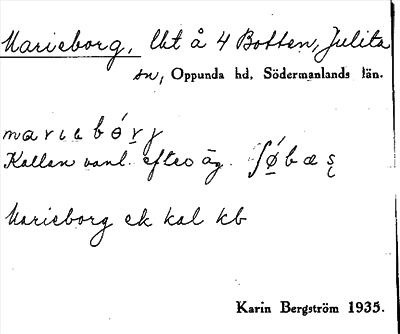 Marieborg, lht å 4 Botten, Julita
sn, Oppunda hd, Södermanlands län.
Kallan vanl. efter äg.
Marieborg ek kal kb
Karin Bergström 1935.